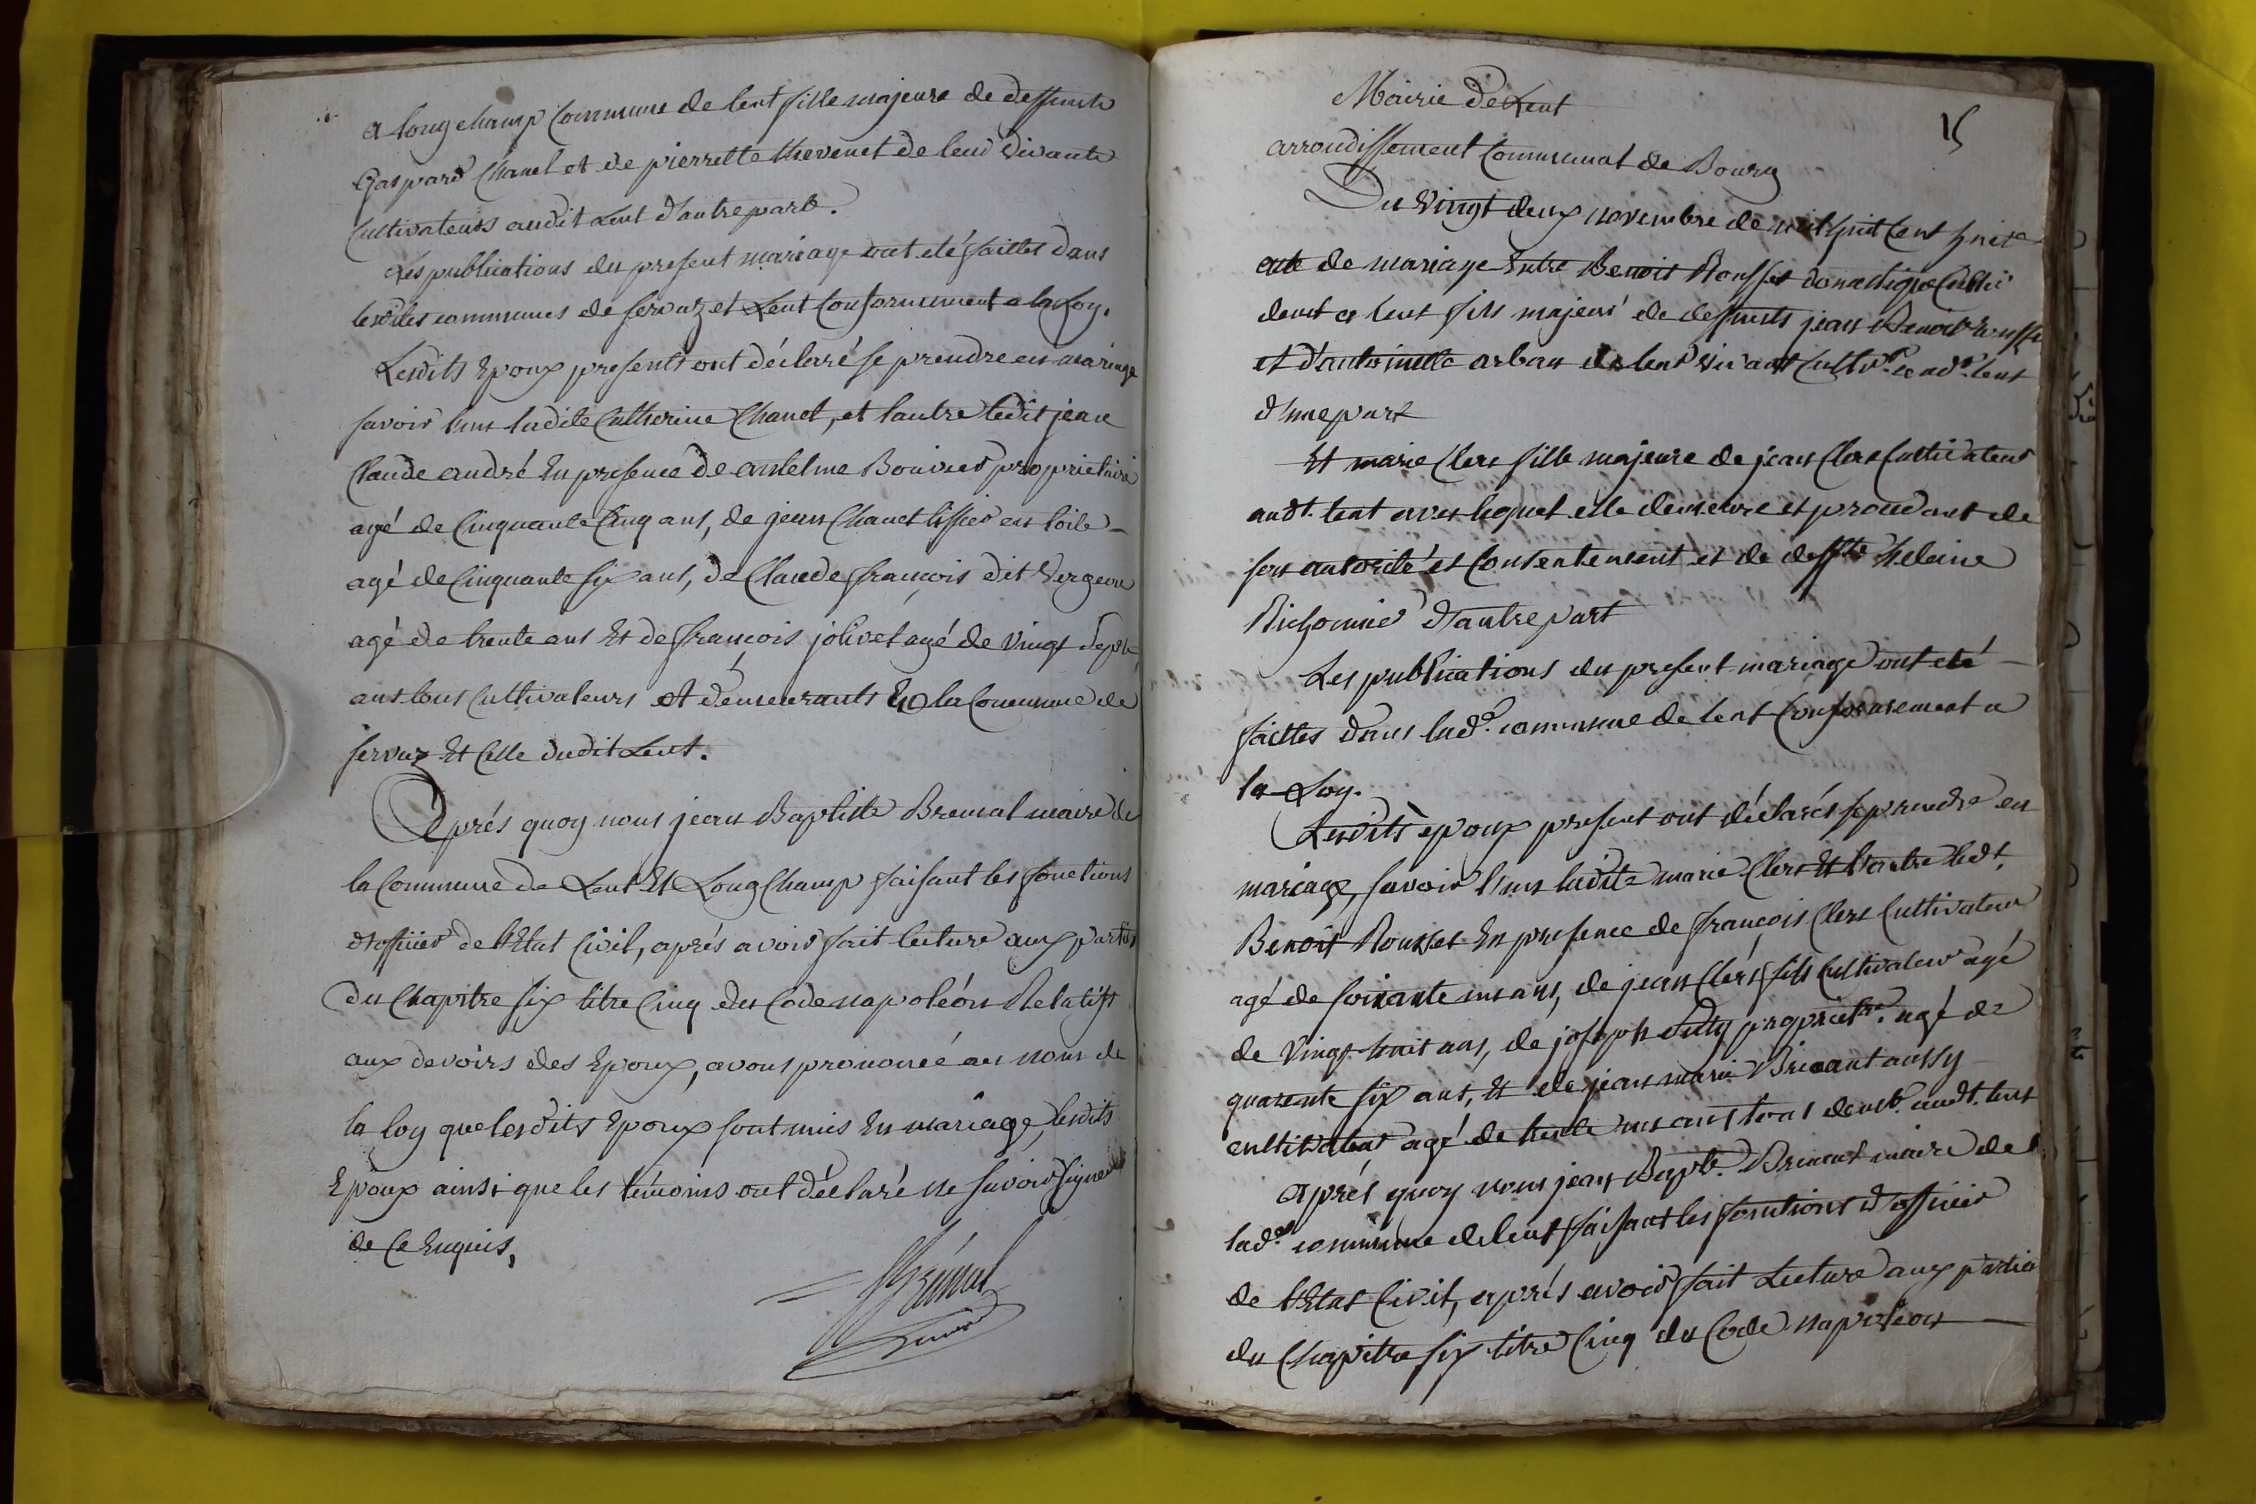 a longchamp Commune de lent fille majeure de deffunts
Gaspard Chanel et de pierrette thevenet de leur vivants
Cultivateurs audit Lent d'autre part.
Les publications du present mariage ont eté faittes dans
lesdites communes de servaz et Lent Conformement a la Loy.
Lesdits Epoux presents ont déclaré se prendre en mariage
savoir l'un ladite Catherine Chanel, et lautre ledit jean
Claude andré En presence de antelme Bouvier propriétaire
agé de Cinquante Cinq ans, de jean Chanel tissier en toile
agé de Cinquante six ans, de Claude françois dit vergeon
agé de trente ans Et de françois jolivet agé de vingt sept
ans tous Cultivateurs et demeurants En la Commune de
servaz Et Celle dudit Lent.
Après quoy nous jean Baptiste Bremal maire de
la Commune de Lent Et LongChamp faisant les fonctions
d'officier de l'Etat Civil, aprés avoir fait lecture aux parties
du Chapitre six titre Cinq du Code napoléon Relatif
aux devoirs des Epoux, avons prononcé au nom de
la loy que lesdits Epoux sont unis En mariage, lesdits
Epoux ainsi que les témoins ont déclaré ne savoir signer
de Ce Enquis,
Brémal
Mairie de Lent
15
arrondissement Communal de Bourg
Du Vingt deux novembre de mil huit Cent huit
acte de mariage Entre Benoit Rousset domestique
demt a lent fils majeur de deffunts jean Benoit Rousset
et d'antoinette arban de leur vivant Cultivrs aud. lent
d'une part
Et marie Clerc fille majeure de jean Clerc Cultivateur
audt. lent avec lequel elle demeure et procedant de
son autorité et Consentement et de deffte helaine
Richonnier d'autre part
Les publications du present mariage ont eté
faittes dans lade. commune de lent Conformement a
la Loy.
Lesdits epoux present ont déclarés se prendre en
mariage, savoir l'un ladite marie Clerc Et l'autre ledt.
Benoit Rousset En presence de françois Clerc Cultivateur
agé de soixante un ans, de jean Clerc fils Cultivateur agé
de Vingt huit ans, de joseph propriétre. agé de
quarente six ans, Et de jean marie aussy
cultivateur agé de trente un ans tous demt. audt. lent
après quoy nous jean Bapte. Bremal maire de
lade. commune de lent faisant les fonctions d'officier
de l'Etat Civil, aprés avoir fait Lecture aux parties
du Chapitre six titre Cinq du Code napoléon